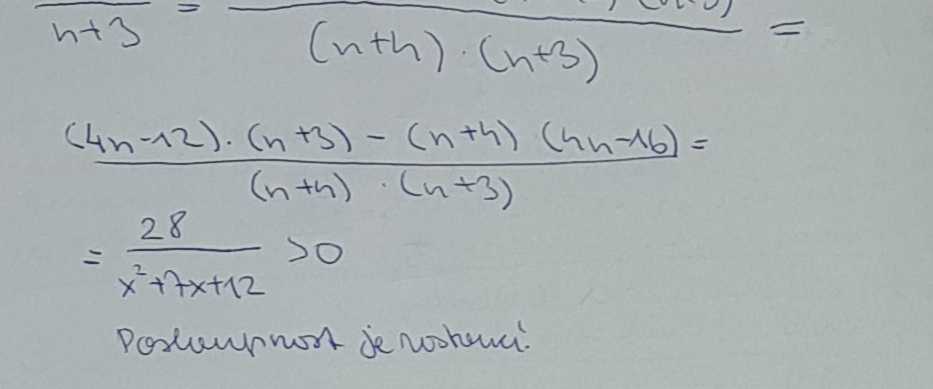 n+3 = (n+4)·(n+3) =
(4n-12)·(n+3) - (n+4)(4n-16) =
(n+4)·(n+3)
= 28 / x²+7x+12 >0
Posloupnost je rostoucí.